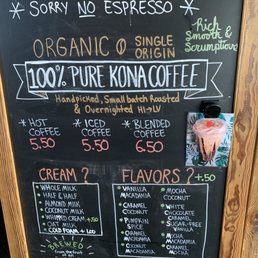 * SORRY NO ESPRESSO *
Rich
Smooth &
Scrumptious
ORGANIC
SINGLE
ORIGIN
100% PURE KONA COFFEE
Handpicked, Small batch Roasted
& Overnighted HI→LV
* HOT
COFFEE
5.50
* ICED
COFFEE
5.50
* BLENDED
COFFEE
6.50
CREAM?
* WHOLE MILK
* HALF & HALF
* ALMOND MILK
* COCONUT MILK
* WHIPPED CREAM +.50
* OAT MILK
* COLD FOAM + 1.00
BREWED
FLAVORS? +.50
* VANILLA
MACADAMIA
* CARAMEL
COCONUT
* PUMPKIN
SPICE
* CARAMEL
MACADAMIA
* COCONUT
CARAMEL
* MOCHA
COCONUT
* WHITE
CHOCOLATE
CARAMEL
* SUGAR-FREE
VANILLA
* MOCHA
MACADAMIA
* MOCHA
COCONUT